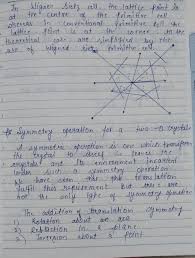 In Wigner Seitz cell, the lattice point is
at the centre of the primitive cell
whereas in conventional primitive cell the
lattice point is at the corner. So the
theoretical calc are simplified by the
use of Wigner Seitz primitive cell.
Symmetry operation for a two-D crystals
A symmetric operation is one which transform
the crystal to itself i.e. leaves the
crystal and its environment invariant
under such a symmetry operation
We have seen that the translation
fulfil this requirement but these are
not the only type of symmetry operation
The addition of translation symmetry
1) Rotation about an axis
2) Reflection in a plane
3) Inversion about a point